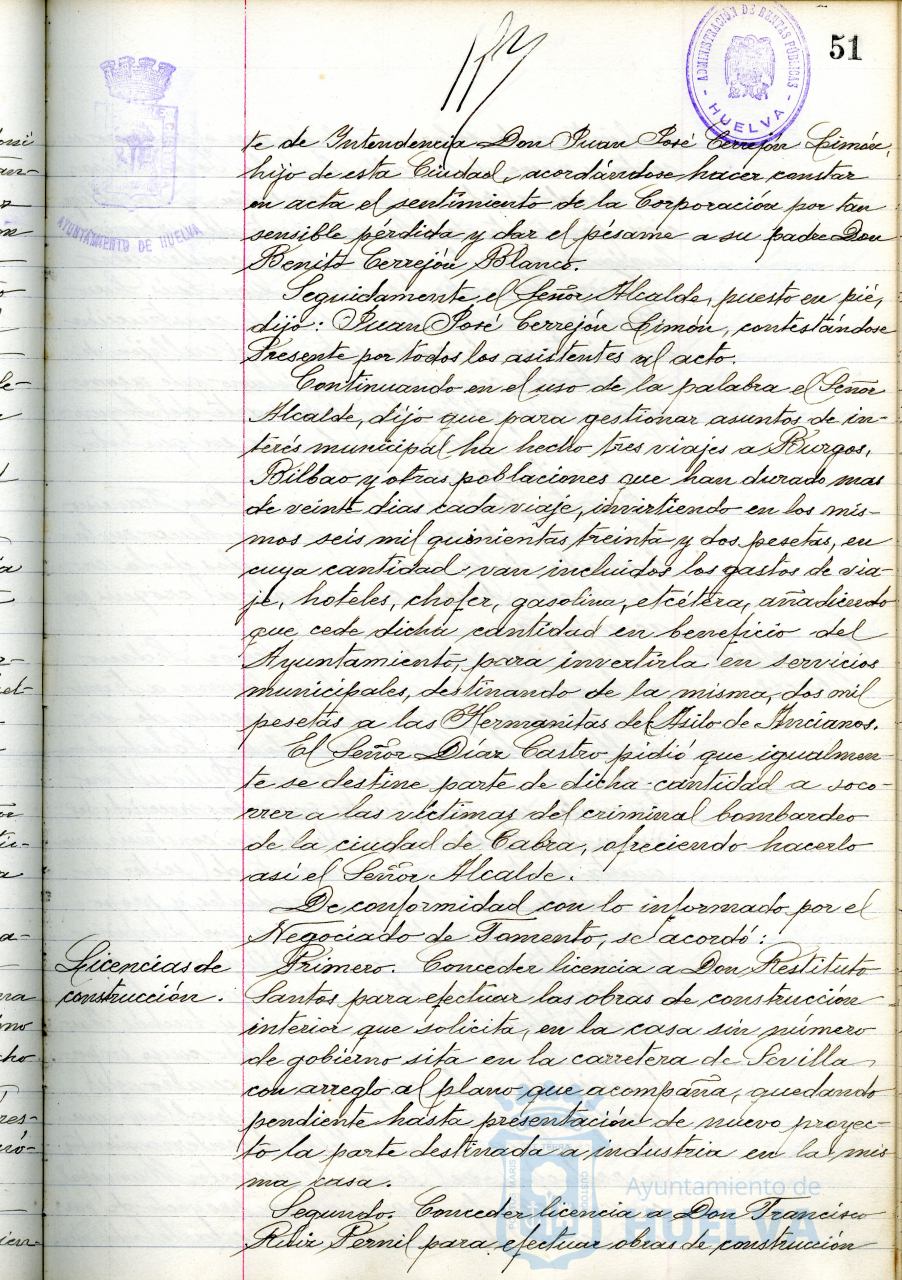 51
ADMINISTRACIÓN DE RENTAS PÚBLICAS
- HUELVA -
AYUNTAMIENTO DE HUELVA
te de Intendencia Don Juan José Cerrejón Limón,
hijo de esta Ciudad, acordándose hacer constar
en acta el sentimiento de la Corporación por tan
sensible pérdida y dar el pésame a su padre Don
Benito Cerrejón Blanco.
Seguidamente el Señor Alcalde, puesto en pié,
dijo: Juan José Cerrejón Limón, contestándose
Presente por todos los asistentes al acto.
Continuando en el uso de la palabra el Señor
Alcalde, dijo que para gestionar asuntos de in-
terés municipal ha hecho tres viajes a Burgos,
Bilbao y otras poblaciones que han durado mas
de veinte dias cada viaje, invirtiendo en los mis-
mos seis mil quinientas treinta y dos pesetas, en
cuya cantidad van incluidos los gastos de via-
je, hoteles, chofer, gasolina, etcétera, añadiendo
que cede dicha cantidad en beneficio del
Ayuntamiento, para invertirla en servicios
municipales, destinando de la misma, dos mil
pesetas a las Hermanitas del Asilo de Ancianos.
El Señor Diaz Castro pidió que igualmen
te se destine parte de dicha cantidad a soco-
rrer a las víctimas del criminal bombardeo
de la ciudad de Cabra, ofreciendo hacerlo
así el Señor Alcalde.
De conformidad con lo informado por el
Negociado de Fomento, se acordó:
Licencias de
construcción.
Primero. Conceder licencia a Don Restituto
Santos para efectuar las obras de construcción
interior que solicita, en la casa sin número
de gobierno sita en la carretera de Sevilla
con arreglo al plano que acompaña, quedando
pendiente hasta presentación de nuevo proyec-
to la parte destinada a industria en la mis
ma casa.
Segundo. Conceder licencia a Don Francisco
Ruiz Pernil para efectuar obras de construcción
Ayuntamiento de
HUELVA